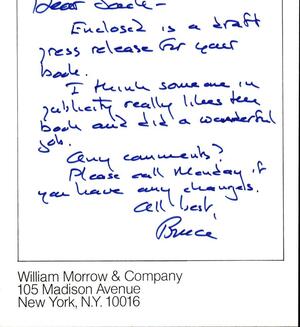 Dear Jack-
Enclosed is a draft
press release for your
book.
I think someone in
publicity really likes the
book and did a wonderful
job.
Any comments?
Please call Monday if
you have any changes.
All best,
Bruce
William Morrow & Company
105 Madison Avenue
New York, N.Y. 10016